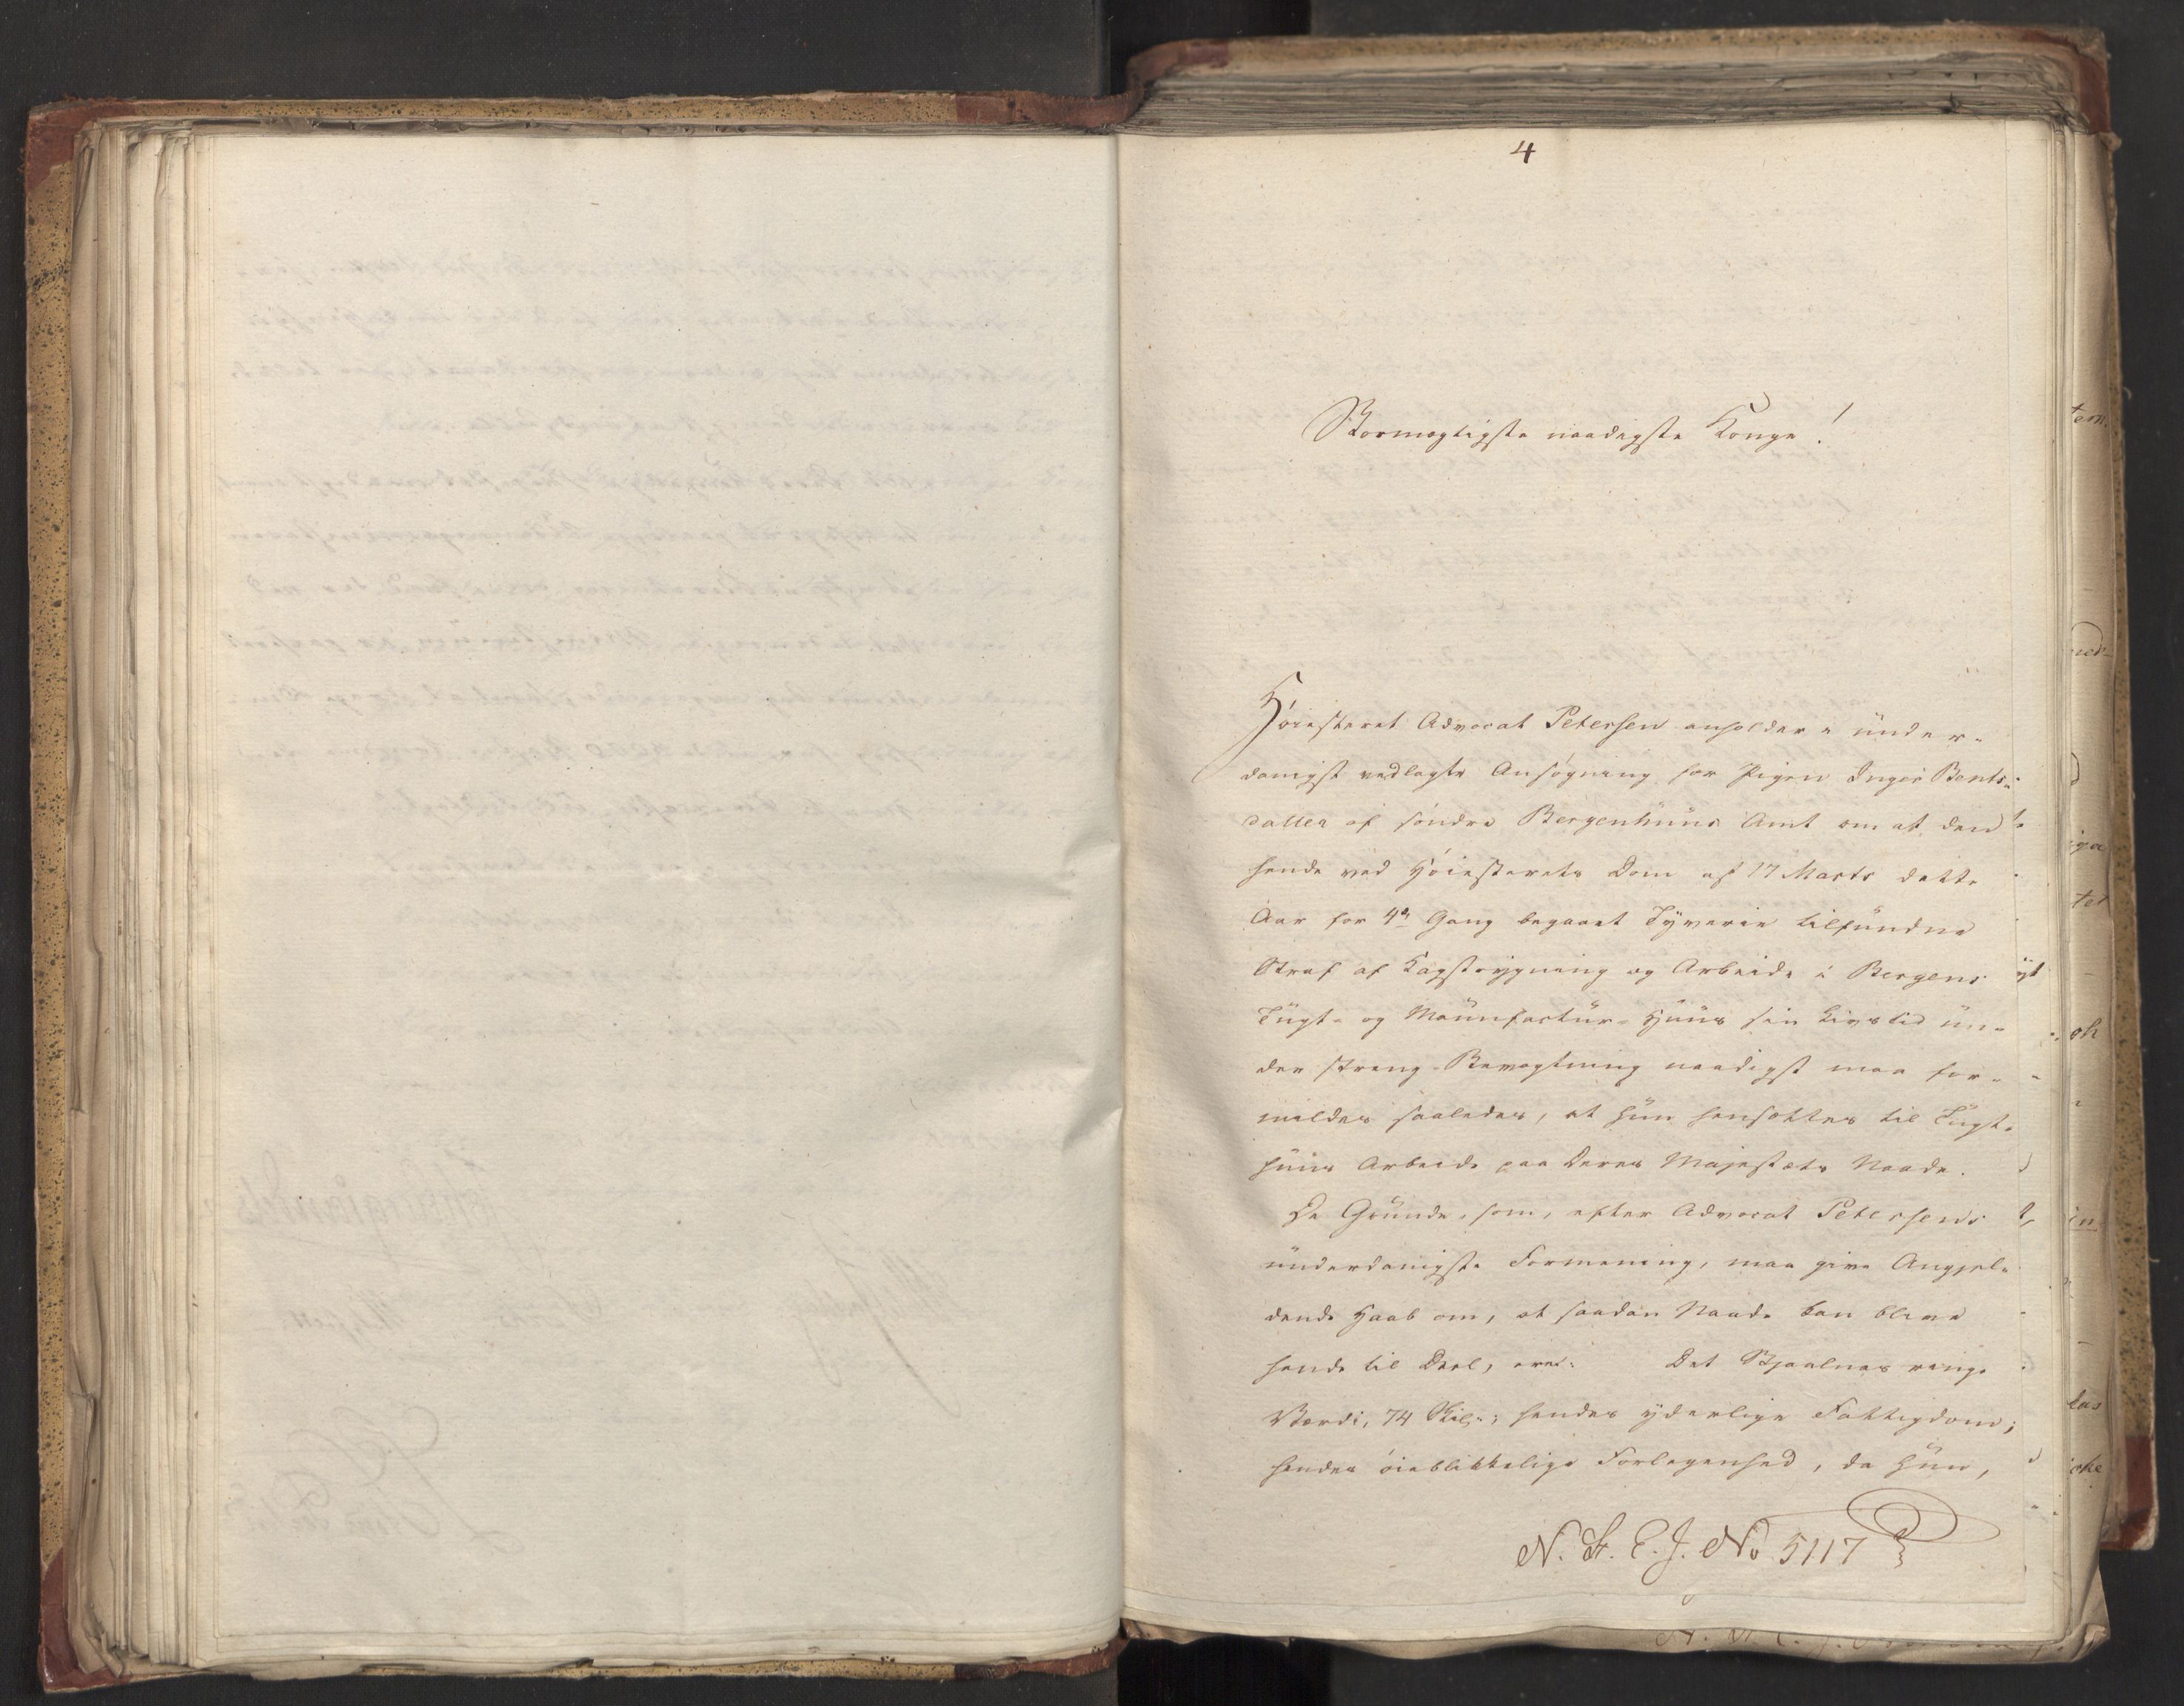 4
Stormægtigste naadigste Konge!
Høiesteret Advocat Petersen anholder i ünder-
danigst vedlagte Ansøgning for Pigen Inger Bents-
datter af søndre Bergenhuus Amt om at den
hende ved Høiesterets Dom af 17 Marts dette
Aar for 4de Gang begaaet Tyverie tilfündne
Straf af Kagstrygning og Arbeide i Bergens
Tügt- og Manufactür-Huus sin Livstid ün-
der streng Bevogtning naadigst maa for-
mildes saaledes, at hün hensættes til Tügt-
huus Arbeide paa Deres Majestæts Naade.
De Gründe, som, efter Advocat Petersens
ünderdanigste Formening, maa give Angjel-
dende Haab om, at saadan Naade kan blive
hende til Deel, ere: Det Stjaalnes ringe
Værdi, 74 Skil.; hendes yderlige Fattigdom;
hendes øieblikkelige Forlegenhed, da hün,
N. St. E. J. No 5117